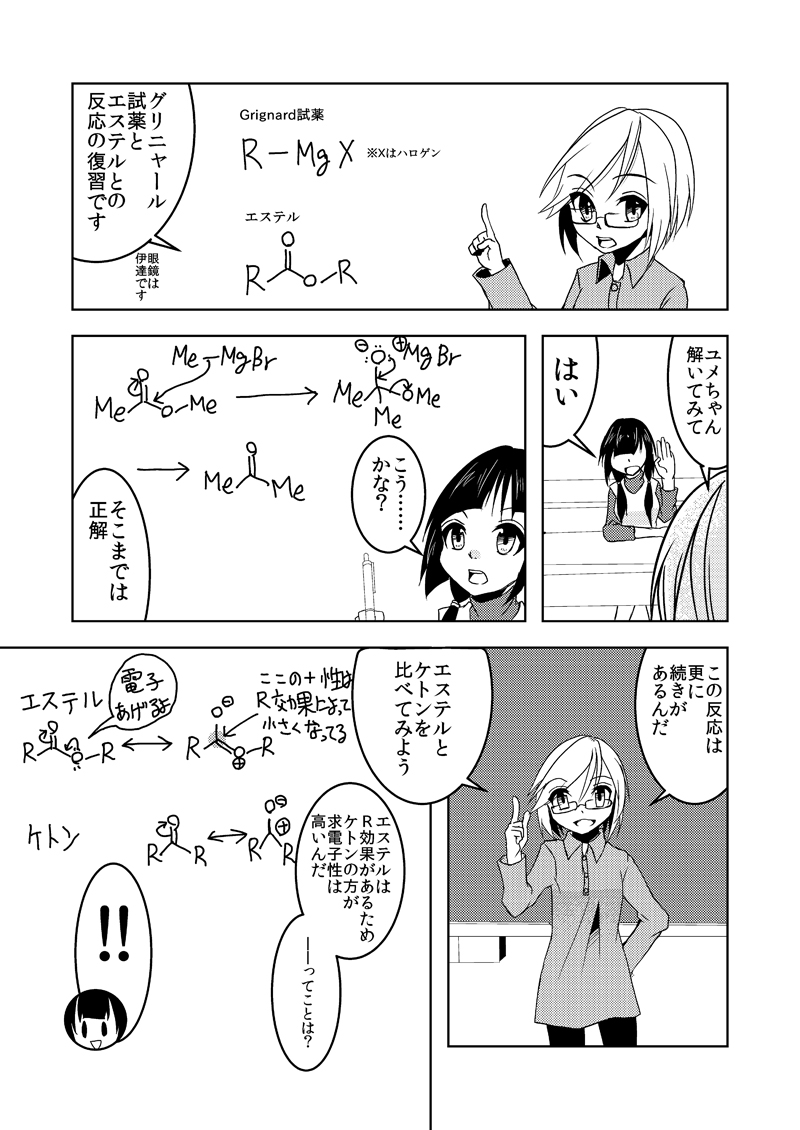 グリニャール
試薬と
エステルとの
反応の復習です
眼鏡は
伊達です
Grignard試薬
R－MgX ※Xはハロゲン
エステル
O
R O－R
ユメちゃん
解いてみて
はい
Me－MgBr
O
Me O－Me
⊖ :O: ⊕MgBr
Me OMe
Me
O
Me Me
こう……
かな？
そこまでは
正解
この反応は
更に
続きが
あるんだ
エステルと
ケトンを
比べてみよう
エステル
電子
あげるよ
O
R O－R
O⊖
R O R
⊕
ここの＋性は
R効果によって
小さくなってる
ケトン
O
R R
O⊖
⊕
R R
エステルは
R効果があるため
ケトンの方が
求電子性は
高いんだ
──ってことは？
!!